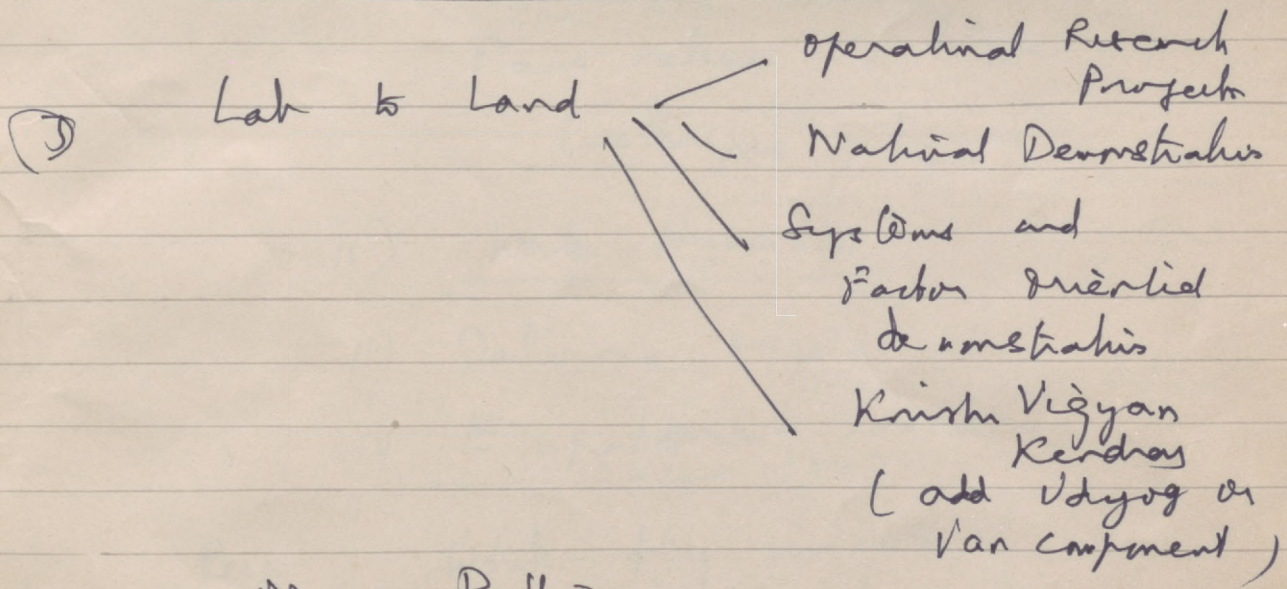 Operational Research
③ Lab to Land
Projects
National Demonstrations
Systems and
Factor oriented
demonstrations
Krishi Vigyan
Kendras
(add Udyog or
Van component)